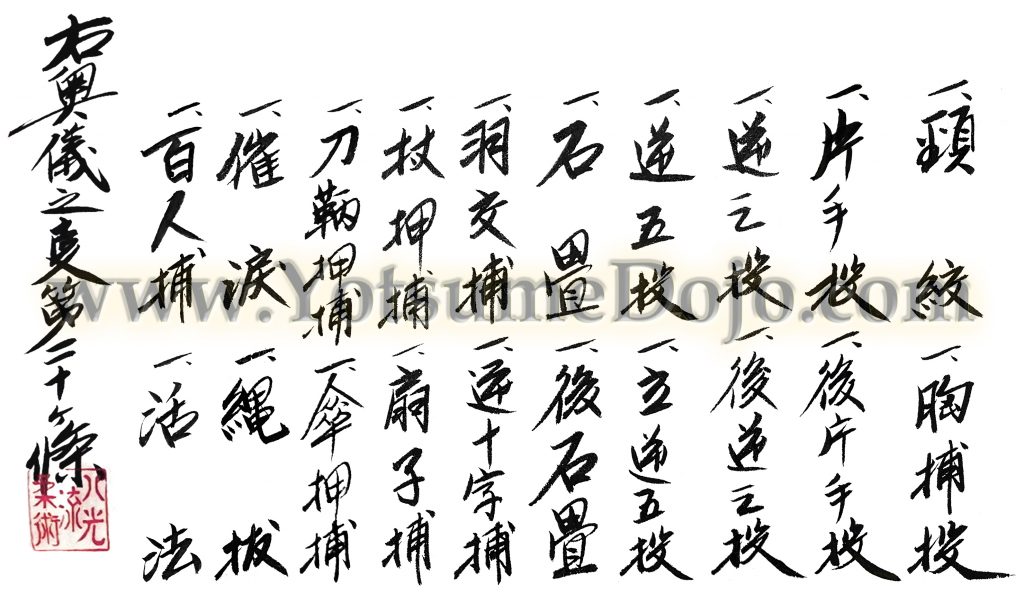 一、頸絞 一、胸捕投
一、片手投 一、後片手投
一、逆三投 一、後逆三投
一、逆五投 一、立逆五投
一、石畳 一、後石疊
一、羽交捕 一、逆十字捕
一、杖押捕 一、扇子捕
一、刀鞆押捕 一、傘押捕
一、催涙 一、縄拔
一、百人捕 一、活法
右奥儀之叓第二十ヶ條
八光流柔術
www.YotsumeDojo.com